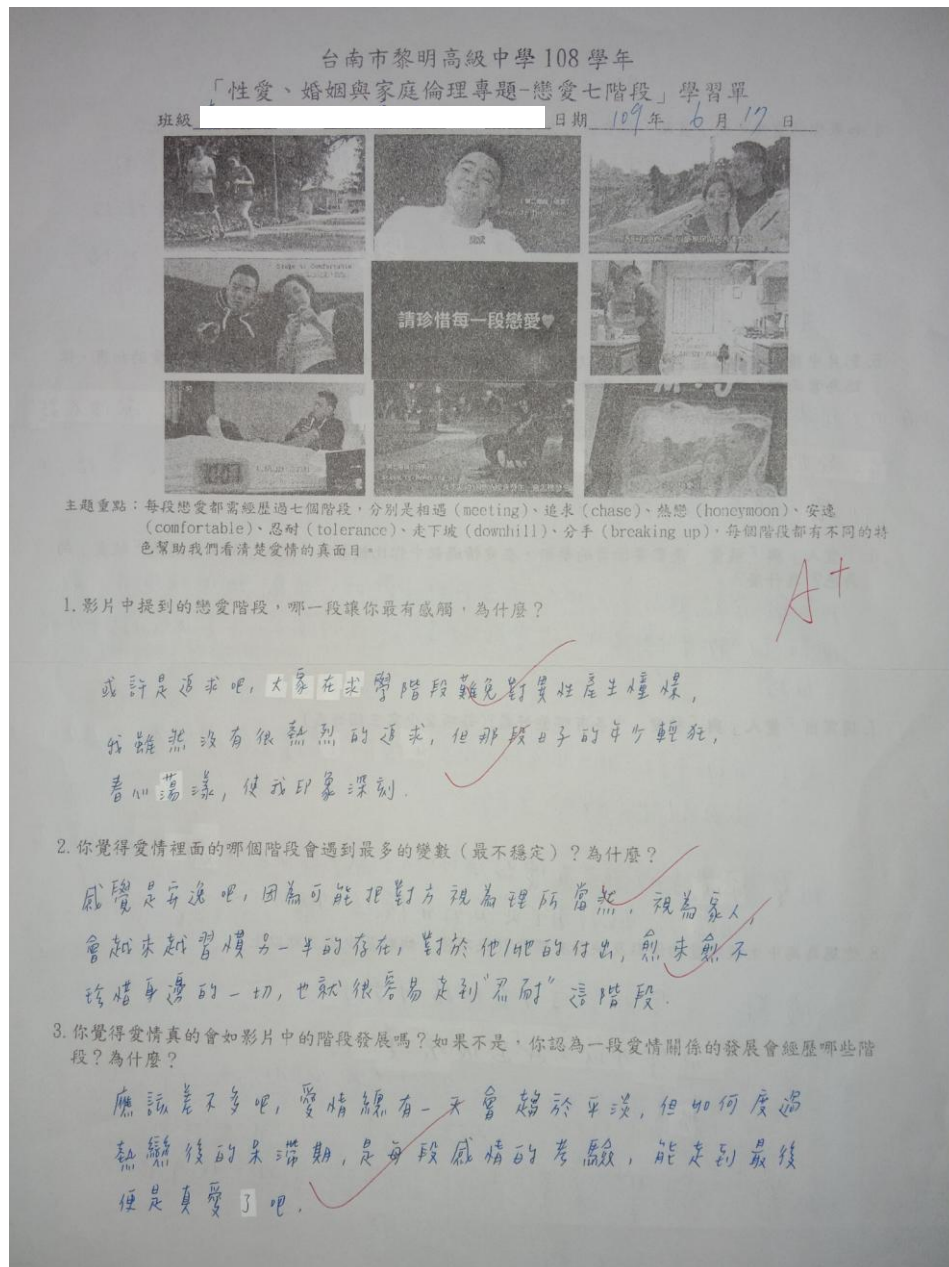 台南市黎明高級中學 108 學年
「性愛、婚姻與家庭倫理專題-戀愛七階段」學習單
班級 日期 109 年 6 月 17 日
請珍惜每一段戀愛♥
主題重點：每段戀愛都需經歷過七個階段，分別是相遇 (meeting)、追求 (chase)、熱戀 (honeymoon)、安逸
(comfortable)、忍耐 (tolerance)、走下坡 (downhill)、分手 (breaking up)，每個階段都有不同的特
色幫助我們看清楚愛情的真面目。
A+
1. 影片中提到的戀愛階段，哪一段讓你最有感觸，為什麼？
或許是追求吧, 大家在求學階段難免對異性產生憧憬,
我雖然沒有很熱烈的追求, 但那段日子的年少輕狂,
春心蕩漾, 使我印象深刻.
2. 你覺得愛情裡面的哪個階段會遇到最多的變數（最不穩定）？為什麼？
感覺是安逸吧, 因為可能把對方視為理所當然, 視為家人,
會越來越習慣另一半的存在, 對於他/她的付出, 愈來愈不
珍惜身邊的一切, 也就很容易走到"忍耐"這階段.
3. 你覺得愛情真的會如影片中的階段發展嗎？如果不是，你認為一段愛情關係的發展會經歷哪些階
段？為什麼？
應該差不多吧, 愛情總有一天會趨於平淡, 但如何度過
熱戀後的呆滯期, 是每段感情的考驗, 能走到最後
便是真愛了吧.